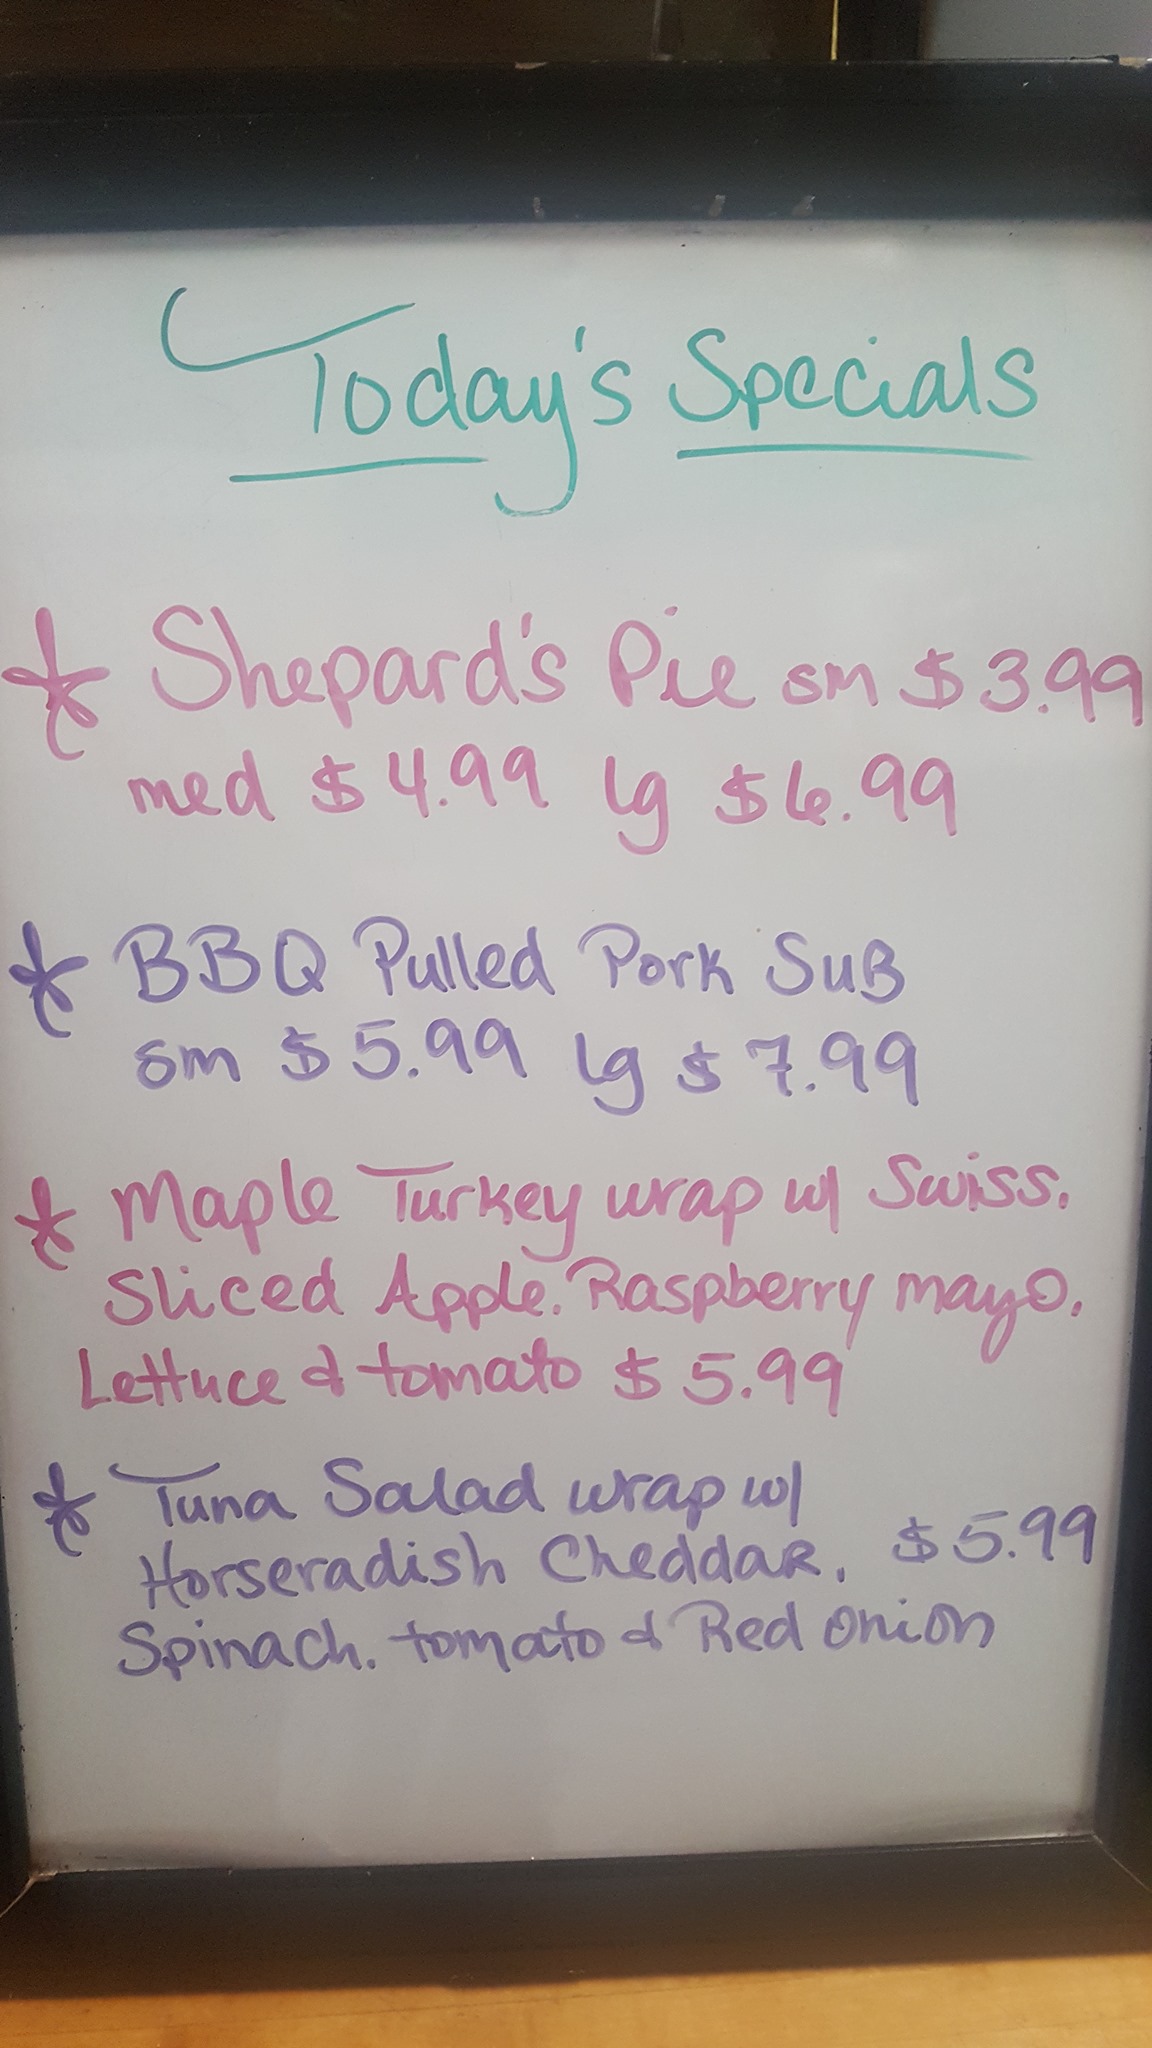 Today's Specials
* Shepard's Pie sm $3.99
med $4.99 lg $6.99
* BBQ Pulled Pork SuB
sm $5.99 lg $7.99
* Maple Turkey wrap w/ Swiss.
Sliced Apple. Raspberry mayo.
Lettuce & tomato $5.99
* Tuna Salad wrap w/
Horseradish Cheddar. $5.99
Spinach. tomato & Red onion